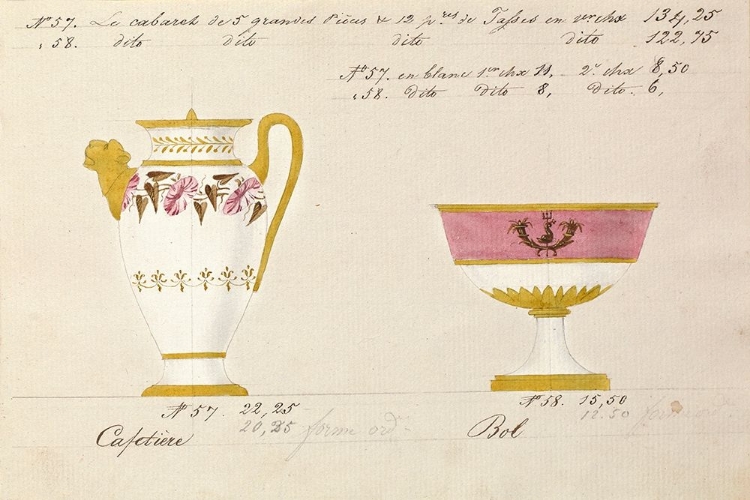 N° 57. Le cabaret de 5 grandes Pièces & 12 p.res de Tasses en 1er chx 134,25
‹ 58. dito dito dito dito 122,75
N° 57. en blanc 1.er chx 11, _ 2.e chx 8,50
‹ 58. Dito Dito 8, Dito. 6,
N° 57. 22,25
20,25 forme ord.
Cafetière
N° 58. 15,50
12.50 forme
Bol